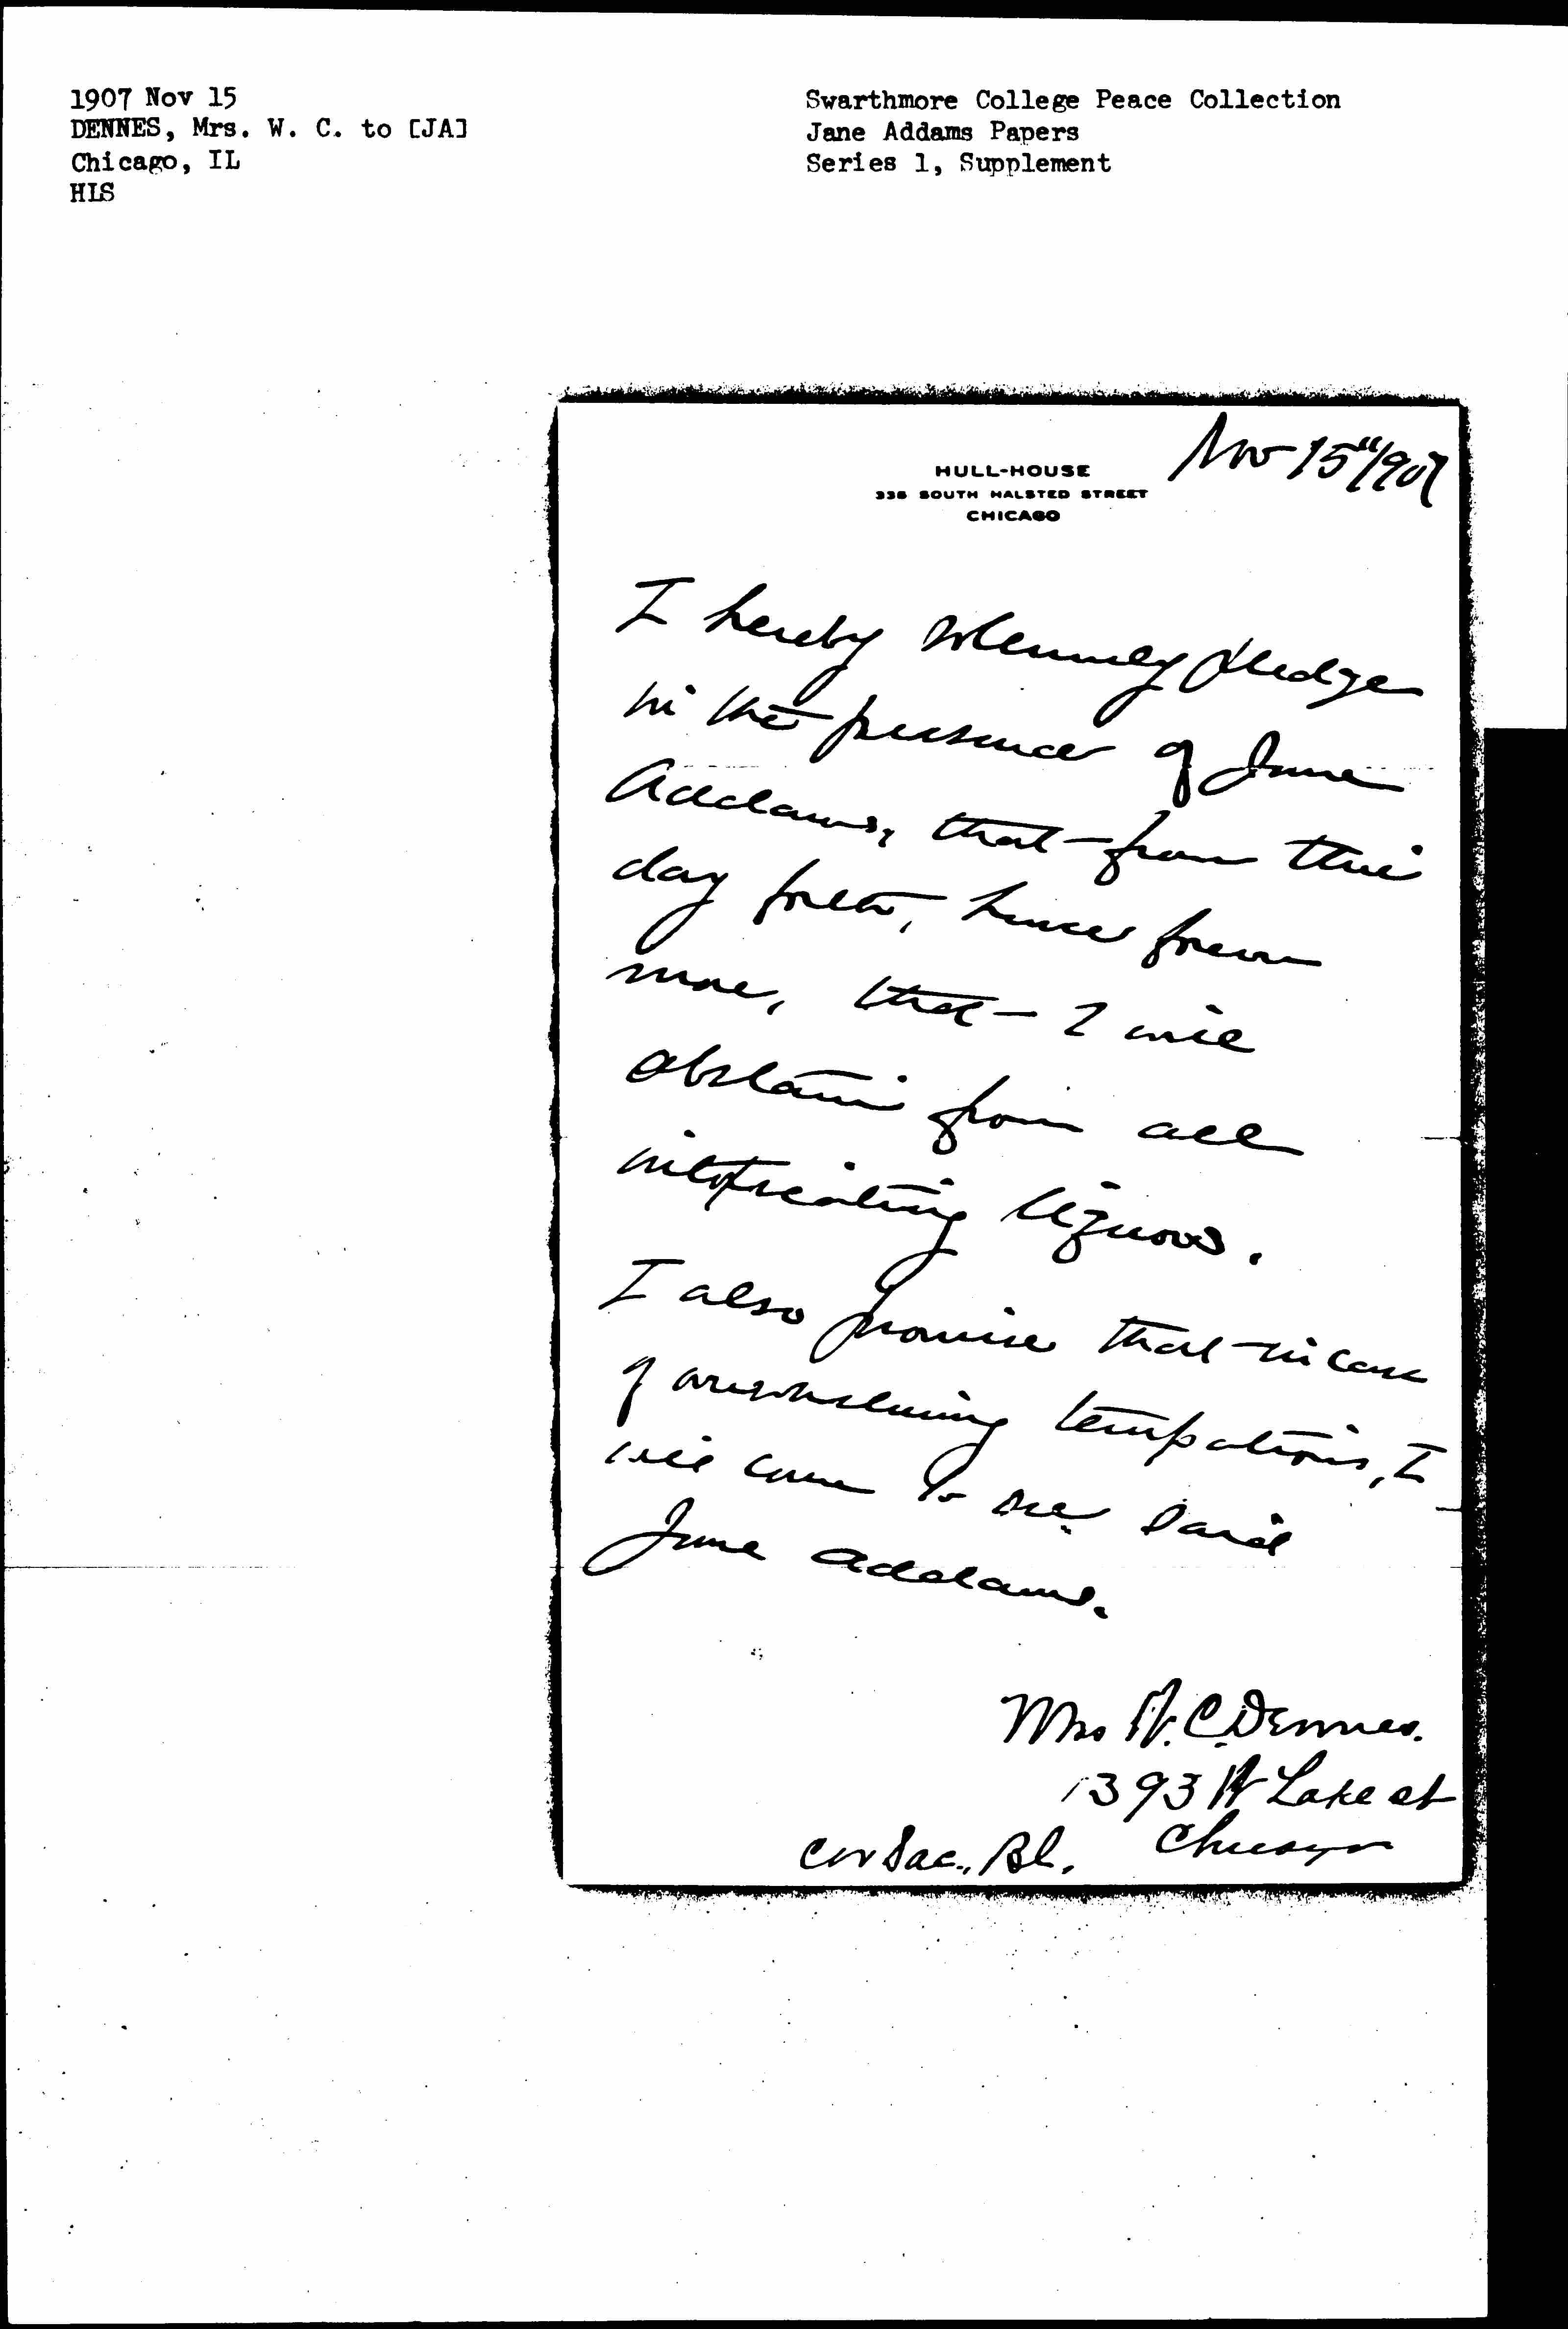 1907 Nov 15
DENNES, Mrs. W. C. to [JA]
Chicago, IL
HLS
Swarthmore College Peace Collection
Jane Addams Papers
Series 1, Supplement
Nov 15"/1907
HULL-HOUSE
335 SOUTH HALSTED STREET
CHICAGO
I hereby solemnly pledge
in the presence of Jane
Addams, that from this
day forth, hence forever
more, that I will
abstain from all
intoxicating liquors.
I also promise that in case
of overwhelming temptations, I
will come to see said
Jane Addams.
Mrs W. C. Dennes.
1393 W Lake st
Cor Sac., Bl. Chicago